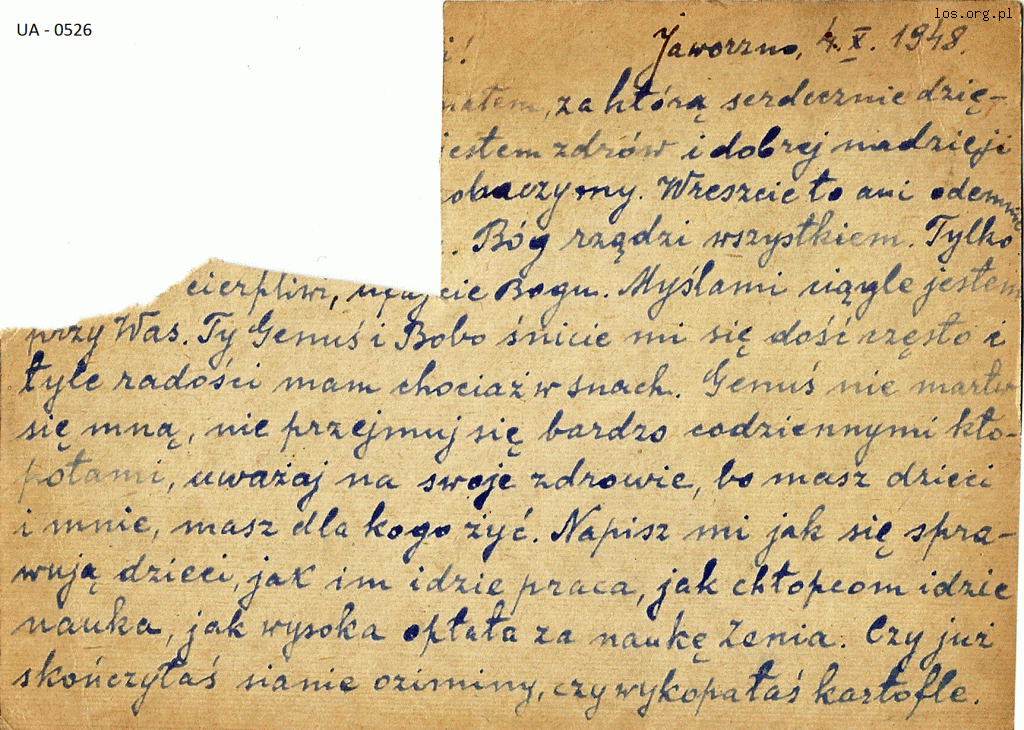 UA - 0526
los.org.pl
i! Jaworzno, 4. X. 1948.
małem, za którą serdecznie dzię-
jestem zdrów i dobrej nadzieji
obaczymy. Wreszcie to ani odemnie
. Bóg rządzi wszystkiem. Tylko
cierpliwi, ufajcie Bogu. Myślami ciągle jestem
przy Was. Ty Genuś i Bobo śnicie mi się dość często i
tyle radości mam chociaż w snach. Genuś nie martw
się mną, nie przejmuj się bardzo codziennymi kło-
potami, uważaj na swoje zdrowie, bo masz dzieci
i mnie, masz dla kogo żyć. Napisz mi jak się spra-
wują dzieci, jak im idzie praca, jak chłopcom idzie
nauka, jak wysoka opłata za naukę Zenia. Czy już
skończyłaś sianie oziminy, czy wykopałaś kartofle.